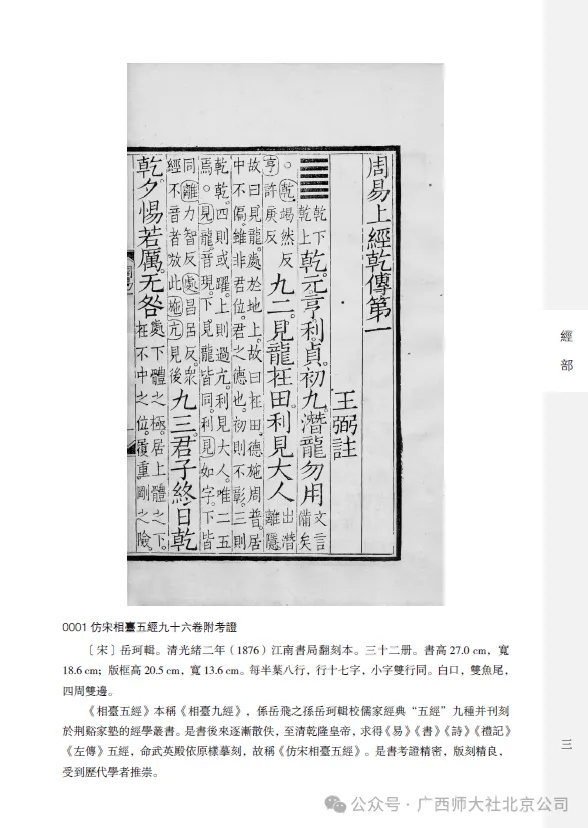 周易上經乾傳第一
王弼註
䷀乾下乾上乾元亨利貞初九潛龍勿用文言備矣
○乾竭然反亨許庚反九二見龍在田利見大人出潛離隱
故曰見龍處於地上故曰在田德施周普居
中不偏雖非君位君之德也初則不彰三則
乾乾四則或躍上則過亢利見大人唯二五
焉○見龍音現下見龍皆同利見如字下皆
同離力智反處昌呂反衆經不音者放此施亢見後九三君子終日乾
乾夕惕若厲无咎處下體之極居上體之下在不中之位履重剛之險
經部
0001 仿宋相臺五經九十六卷附考證
〔宋〕岳珂輯。清光緒二年（1876）江南書局翻刻本。三十二册。書高 27.0 cm，寬
18.6 cm；版框高 20.5 cm，寬 13.6 cm。每半葉八行，行十七字，小字雙行同。白口，雙魚尾，
四周雙邊。
《相臺五經》本稱《相臺九經》，係岳飛之孫岳珂輯校儒家經典“五經”九種并刊刻
於荆谿家塾的經學叢書。是書後來逐漸散佚，至清乾隆皇帝，求得《易》《書》《詩》《禮記》
《左傳》五經，命武英殿依原樣摹刻，故稱《仿宋相臺五經》。是書考證精密，版刻精良，
受到歷代學者推崇。
三
公众号 · 广西师大社北京公司